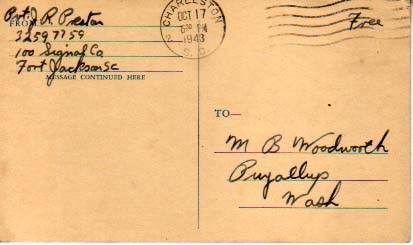 Pvt J. R. Preston
FROM
32597759
100 Signal Co
Fort Jackson SC
MESSAGE CONTINUED HERE
CHARLESTON
OCT 17
PM
1943
S. C.
2
Free
TO—
M B Woodworth
Puyallup
Wash